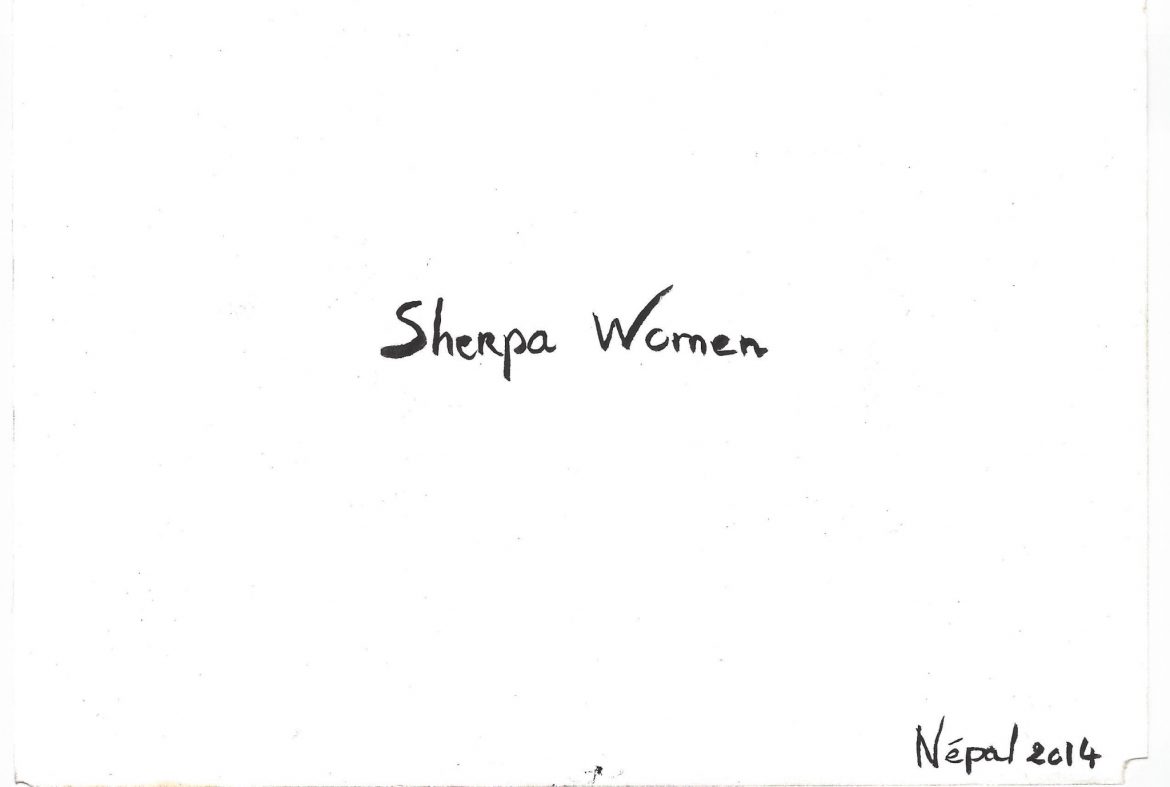 Sherpa Women
Népal 2014